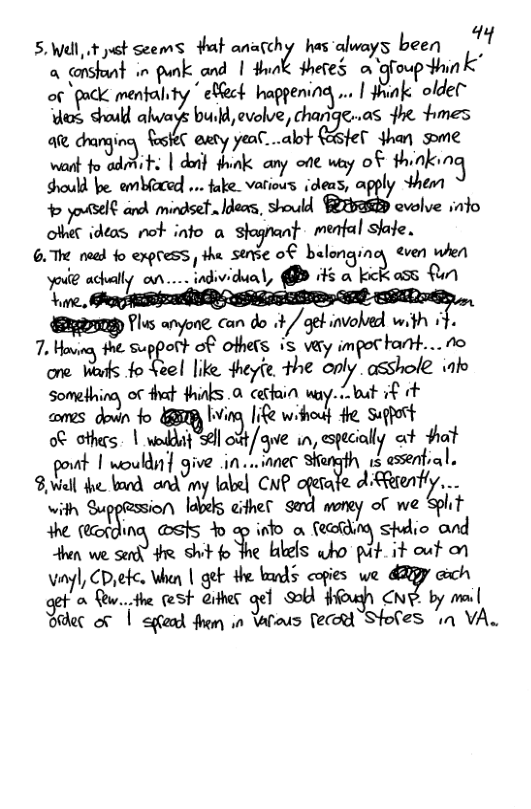 44
5. Well, it just seems that anarchy has always been
a constant in punk and I think there's a 'group think'
or 'pack mentality' effect happening... I think older
ideas should always build, evolve, change...as the times
are changing faster every year...alot faster than some
want to admit. I don't think any one way of thinking
should be embraced... take various ideas, apply them
to yourself and mindset. Ideas, should evolve into
other ideas not into a stagnant mental state.
6. The need to express, the sense of belonging even when
you're actually an.... individual, it's a kick ass fun
time.
Plus anyone can do it/get involved with it.
7. Having the support of others is very important... no
one wants to feel like they're the only asshole into
something or that thinks a certain way...but if it
comes down to living life without the support
of others I wouldn't sell out/give in, especially at that
point I wouldn't give in...inner strength is essential.
8. Well the band and my label CNP operate differently...
with Suppression labels either send money or we split
the recording costs to go into a recording studio and
then we send the shit to the labels who put it out on
vinyl, CD, etc. When I get the band's copies we each
get a few...the rest either get sold through CNP by mail
order or I spread them in various record stores in VA.